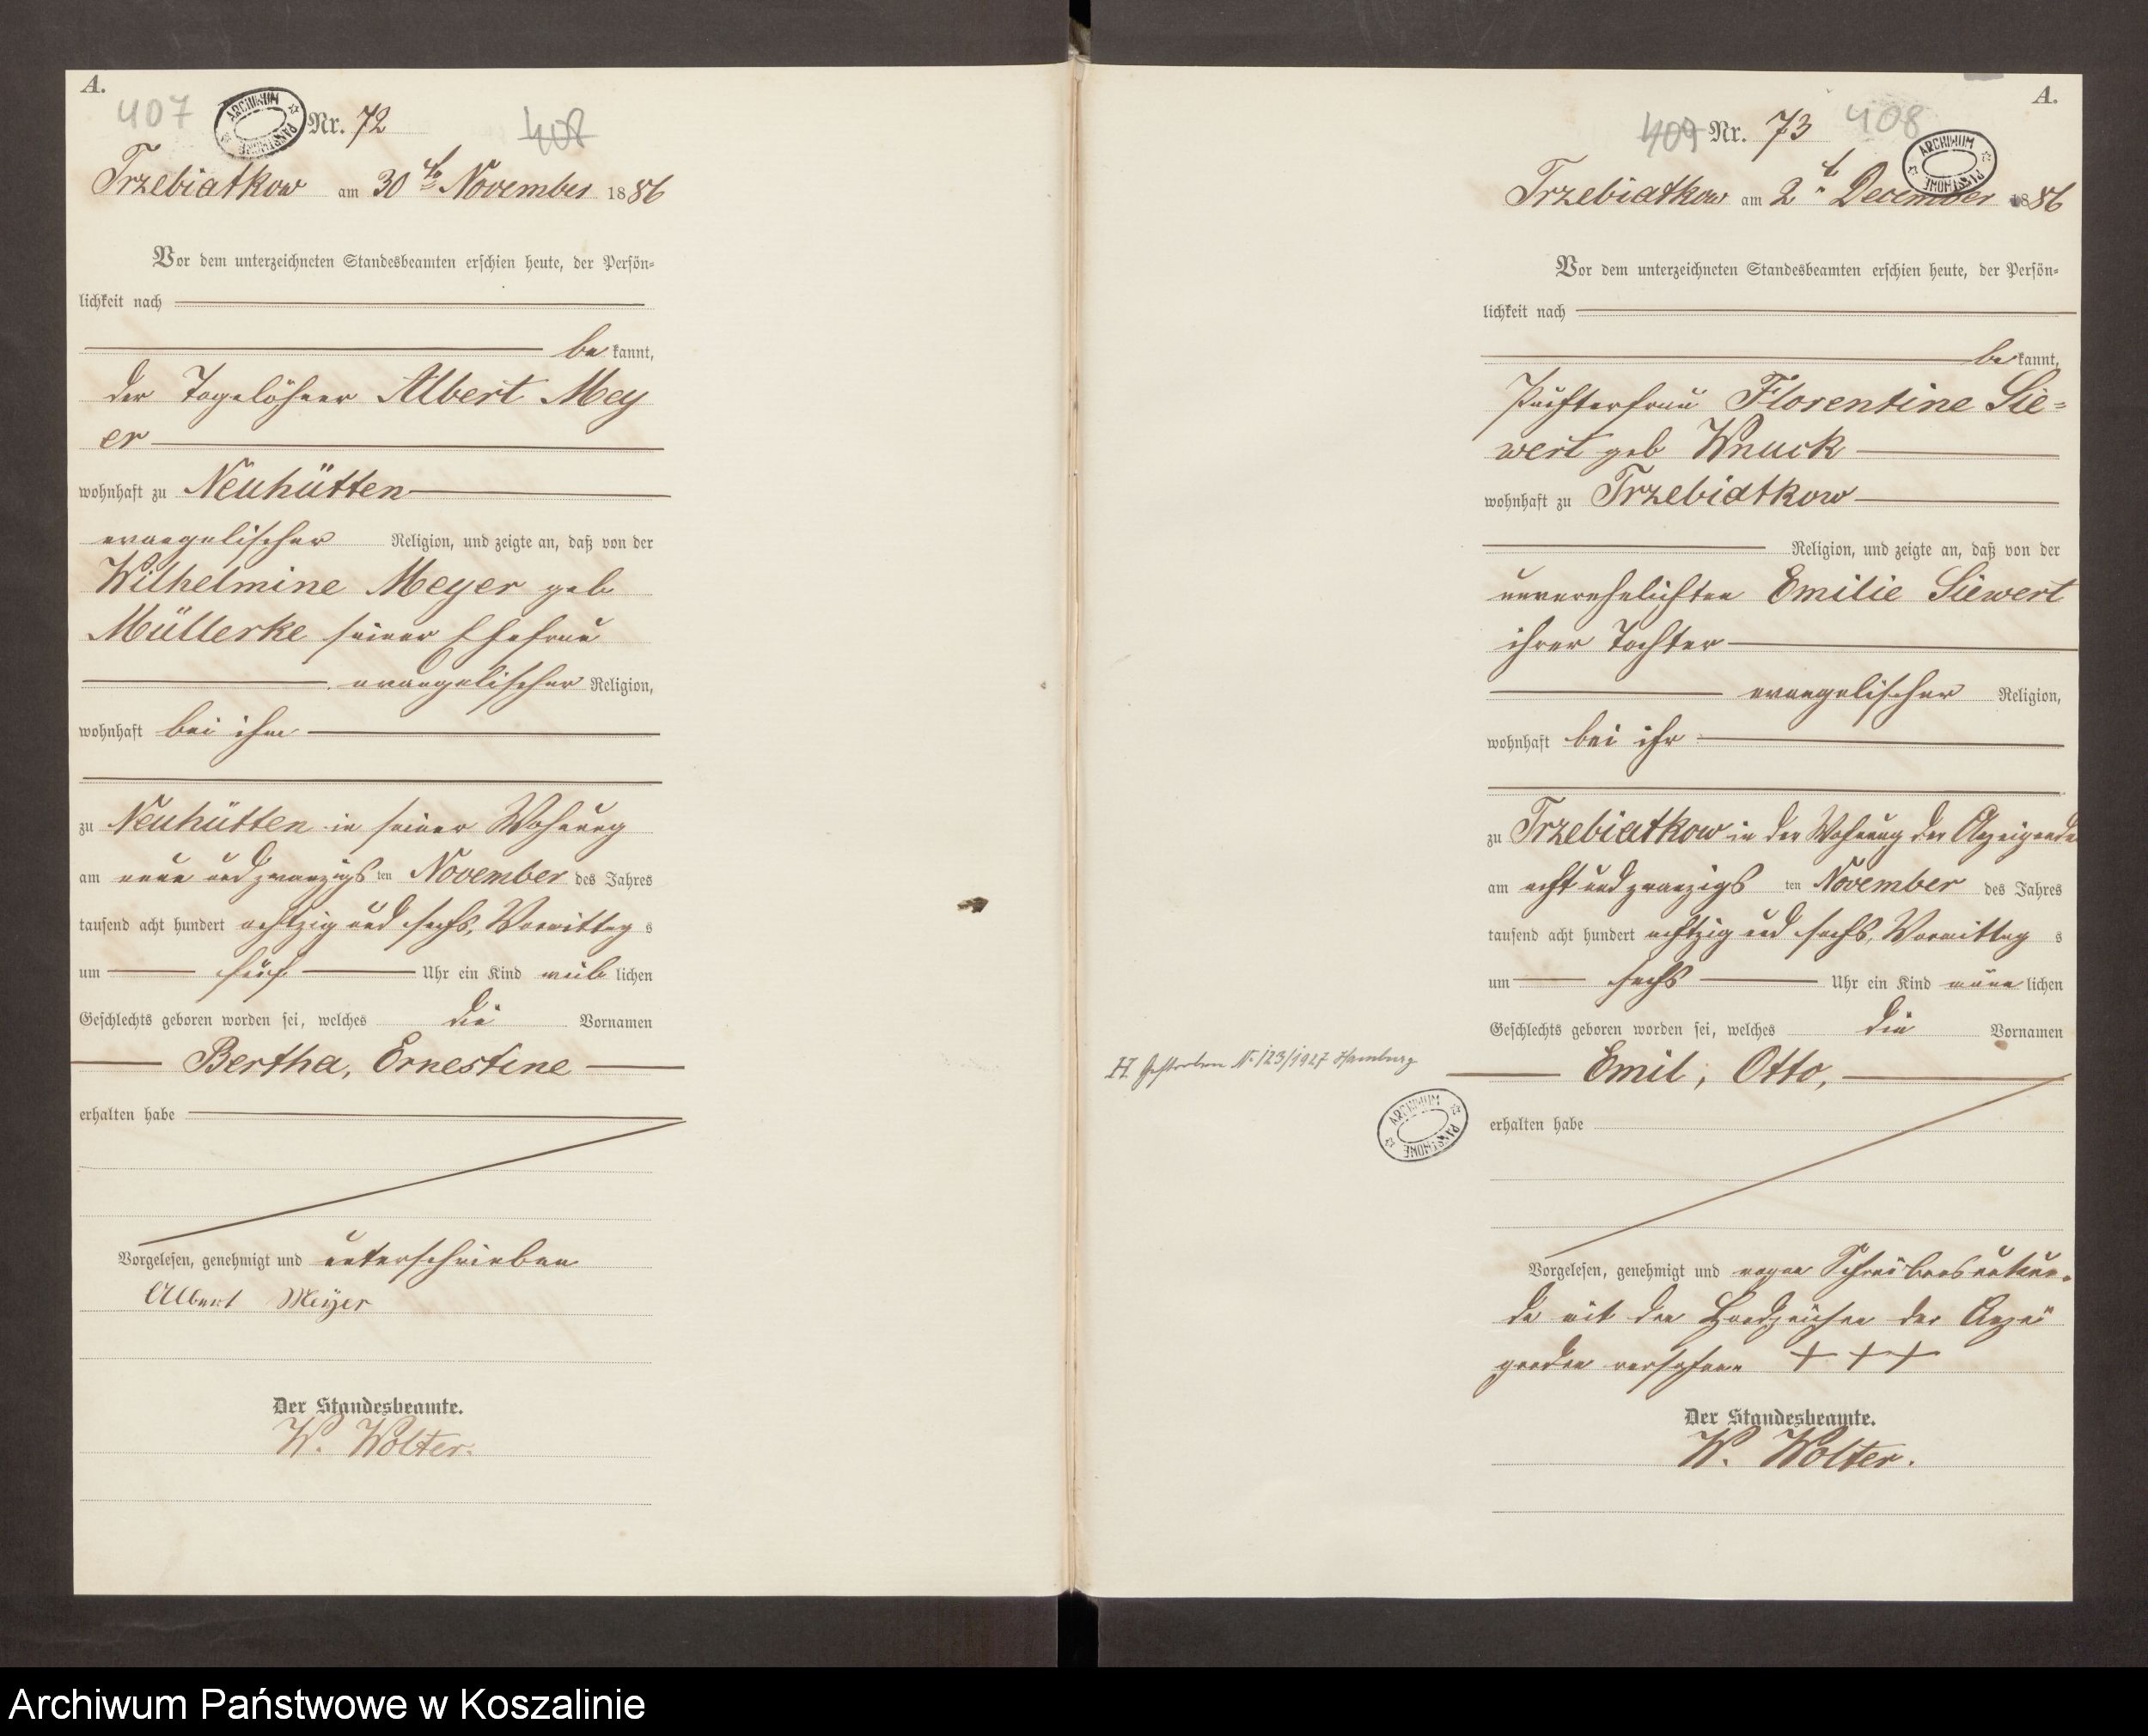 A.
407
ARCHIWUM PAŃSTWOWE
Nr. 72
408
Trzebiatkow am 30ten November 1886
Vor dem unterzeichneten Standesbeamten erschien heute, der Persön-
lichkeit nach
be kannt,
der Tagelöhner Albert Mey
er
wohnhaft zu Neuhütten
evangelischer Religion, und zeigte an, daß von der
Wilhelmine Meyer geb
Müllerke seiner Ehefrau
evangelischer Religion,
wohnhaft bei ihm
zu Neuhütten in seiner Wohnung
am neun und zwanzigs ten November des Jahres
tausend acht hundert achtzig und sechs, Vormittag s
um fünf Uhr ein Kind weib lichen
Geschlechts geboren worden sei, welches die Vornamen
Bertha, Ernestine
erhalten habe
Vorgelesen, genehmigt und unterschrieben
Albert Meyer
Der Standesbeamte.
W. Wolter.
A.
409 Nr. 73 408
ARCHIWUM PAŃSTWOWE
Trzebiatkow am 2t December 1886
Vor dem unterzeichneten Standesbeamten erschien heute, der Persön-
lichkeit nach
be kannt,
Pächterfrau Florentine Sie-
wert geb Wnuck
wohnhaft zu Trzebiatkow
Religion, und zeigte an, daß von der
unverehelichten Emilie Siewert
ihrer Tochter
evangelischer Religion,
wohnhaft bei ihr
zu Trzebiatkow in der Wohnung der Anzeigenden
am acht und zwanzigs ten November des Jahres
tausend acht hundert achtzig und sechs, Vormittag s
um sechs Uhr ein Kind männ lichen
Geschlechts geboren worden sei, welches die Vornamen
H. Gestorben N. 123/1927 Hamburg
Emil, Otto,
ARCHIWUM PAŃSTWOWE
erhalten habe
Vorgelesen, genehmigt und wegen Schreibensunkun-
de mit den Handzeichen der Anzei
genden versehen + + +
Der Standesbeamte.
W. Wolter.
Archiwum Państwowe w Koszalinie